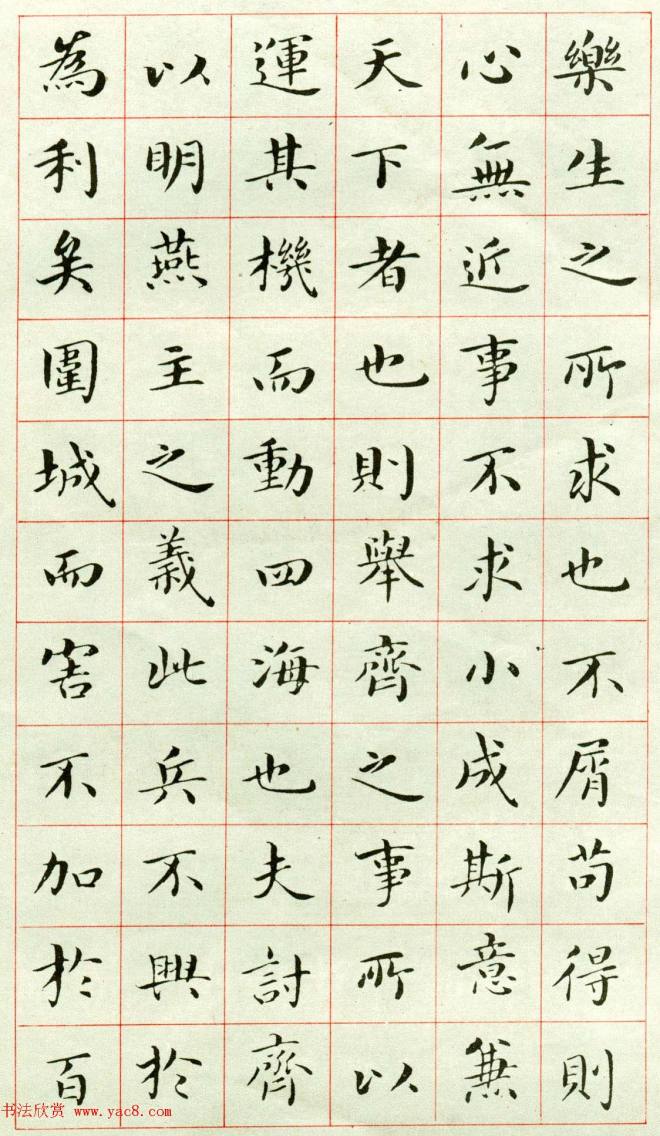 樂生之所求也不屑苟得則
心無近事不求小成斯意兼
天下者也則舉齊之事所以
運其機而動四海也夫討齊
以明燕主之義此兵不興於
為利矣圍城而害不加於百
书法欣赏 www.yac8.com